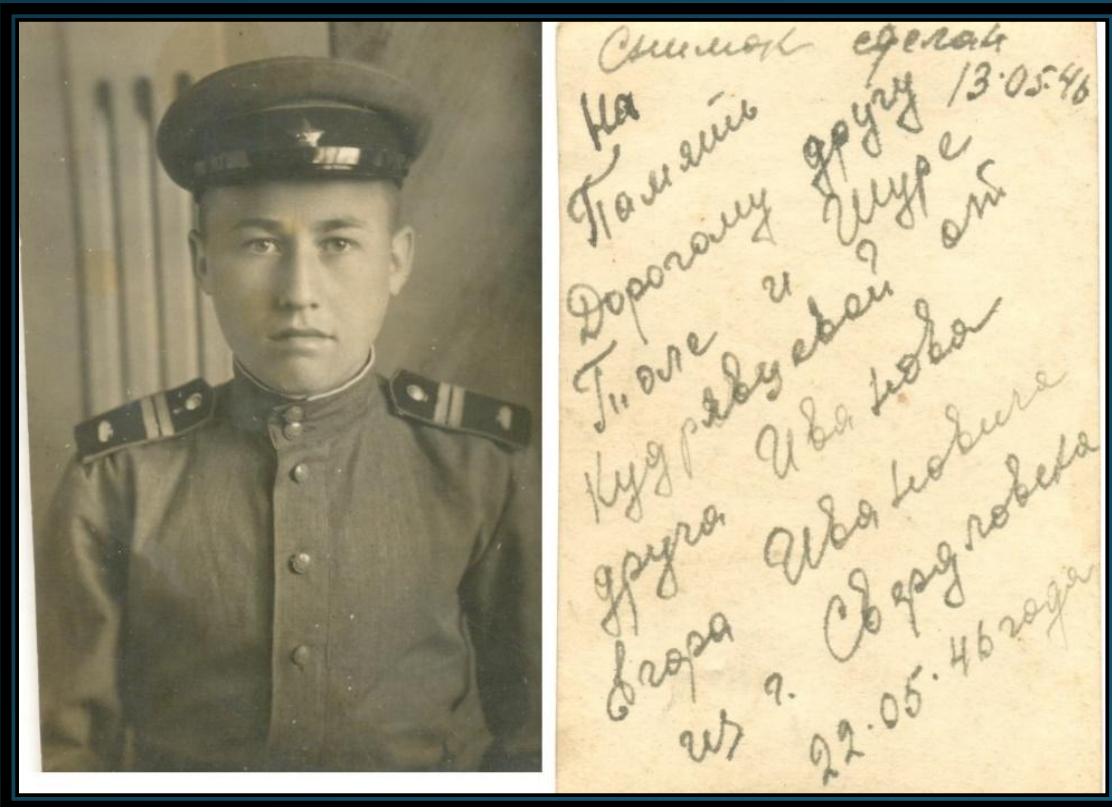 Снимок сделан
13.05.46
На
Память
Дорогому другу
Толе и Шуре
Кудрявцевой от
друга Иванова
Егора Ивановича
из г. Свердловска
22.05.46 года